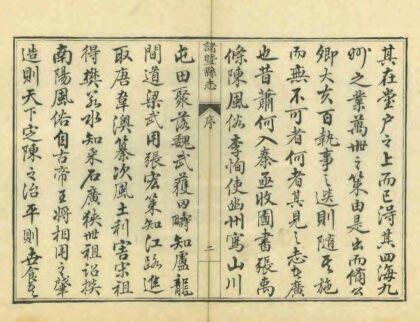 其在堂户之上而已得其四海九
州之業萬世之策由是出而備公
卿大夫百執事之選則隨其施
而無不可者何者其見之志在廣
也昔蕭何入秦亟收圖書張禹
條陳風俗李恂使幽州寫山川
諸暨縣志
序
二
屯田聚落魏武獲田疇知盧龍
間道梁武用張宏策知江路進
取唐韋澳纂次風土利害宋祖
得樊若水知采石廣狹世祖詔撰
南陽風俗自古帝王將相用之肇
造則天下定陳之治平則